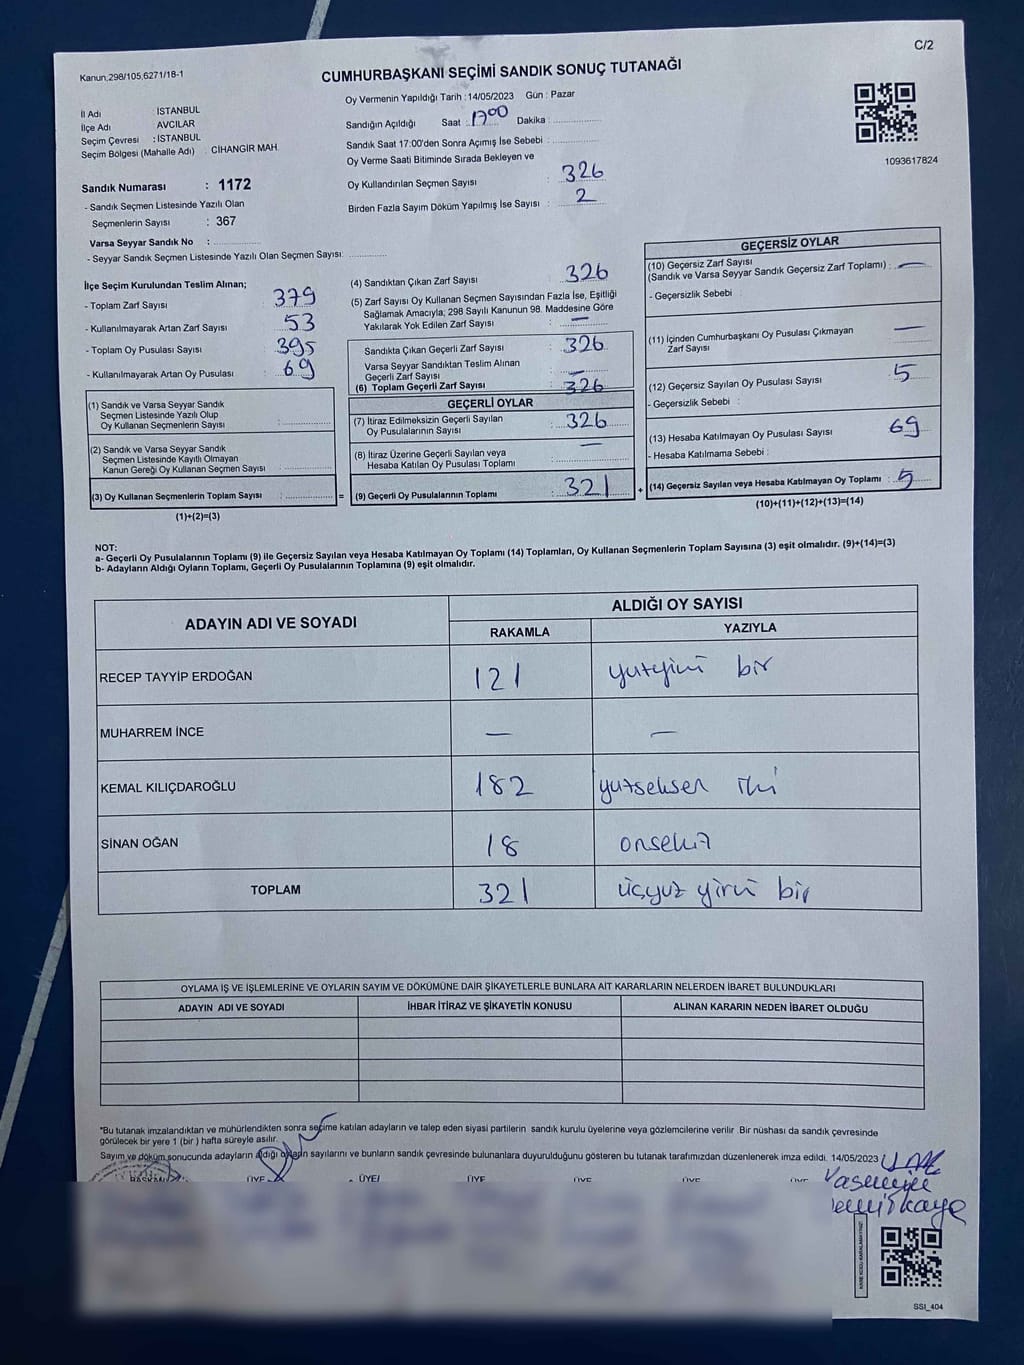 C/2
Kanun,298/105,6271/18-1
CUMHURBAŞKANI SEÇİMİ SANDIK SONUÇ TUTANAĞI
İl Adı İSTANBUL
İlçe Adı AVCILAR
Seçim Çevresi : İSTANBUL
Seçim Bölgesi (Mahalle Adı) : CİHANGİR MAH.
Sandık Numarası : 1172
- Sandık Seçmen Listesinde Yazılı Olan
Seçmenlerin Sayısı : 367
Varsa Seyyar Sandık No :
- Seyyar Sandık Seçmen Listesinde Yazılı Olan Seçmen Sayısı:
Oy Vermenin Yapıldığı Tarih : 14/05/2023 Gün : Pazar
Sandığın Açıldığı Saat : 17 00 Dakika :
Sandık Saat 17:00'den Sonra Açımış İse Sebebi :
Oy Verme Saati Bitiminde Sırada Bekleyen ve
Oy Kullandırılan Seçmen Sayısı : 326
Birden Fazla Sayım Döküm Yapılmış İse Sayısı : 2
1093617824
İlçe Seçim Kurulundan Teslim Alınan;
- Toplam Zarf Sayısı : 379
- Kullanılmayarak Artan Zarf Sayısı : 53
- Toplam Oy Pusulası Sayısı : 395
- Kullanılmayarak Artan Oy Pusulası : 69
(1) Sandık ve Varsa Seyyar Sandık
Seçmen Listesinde Yazılı Olup
Oy Kullanan Seçmenlerin Sayısı :
(2) Sandık ve Varsa Seyyar Sandık
Seçmen Listesinde Kayıtlı Olmayan
Kanun Gereği Oy Kullanan Seçmen Sayısı :
(3) Oy Kullanan Seçmenlerin Toplam Sayısı : =
(1)+(2)=(3)
(4) Sandıktan Çıkan Zarf Sayısı : 326
(5) Zarf Sayısı Oy Kullanan Seçmen Sayısından Fazla İse, Eşitliği
Sağlamak Amacıyla; 298 Sayılı Kanunun 98. Maddesine Göre
Yakılarak Yok Edilen Zarf Sayısı : —
Sandıkta Çıkan Geçerli Zarf Sayısı : 326
Varsa Seyyar Sandıktan Teslim Alınan
Geçerli Zarf Sayısı : —
(6) Toplam Geçerli Zarf Sayısı : 326
GEÇERLİ OYLAR
(7) İtiraz Edilmeksizin Geçerli Sayılan
Oy Pusulalarının Sayısı : 326
(8) İtiraz Üzerine Geçerli Sayılan veya
Hesaba Katılan Oy Pusulası Toplamı : —
(9) Geçerli Oy Pusulalarının Toplamı : 321 +
GEÇERSİZ OYLAR
(10) Geçersiz Zarf Sayısı
(Sandık ve Varsa Seyyar Sandık Geçersiz Zarf Toplamı) : —
- Geçersizlik Sebebi :
(11) İçinden Cumhurbaşkanı Oy Pusulası Çıkmayan
Zarf Sayısı : —
(12) Geçersiz Sayılan Oy Pusulası Sayısı : 5
- Geçersizlik Sebebi :
(13) Hesaba Katılmayan Oy Pusulası Sayısı : 69
- Hesaba Katılmama Sebebi :
(14) Geçersiz Sayılan veya Hesaba Katılmayan Oy Toplamı : 5
(10)+(11)+(12)+(13)=(14)
NOT:
a- Geçerli Oy Pusulalarının Toplamı (9) ile Geçersiz Sayılan veya Hesaba Katılmayan Oy Toplamı (14) Toplamları, Oy Kullanan Seçmenlerin Toplam Sayısına (3) eşit olmalıdır. (9)+(14)=(3)
b- Adayların Aldığı Oyların Toplamı, Geçerli Oy Pusulalarının Toplamına (9) eşit olmalıdır.
ADAYIN ADI VE SOYADI ALDIĞI OY SAYISI
RAKAMLA YAZIYLA
RECEP TAYYİP ERDOĞAN 121 yüzyirmi bir
MUHARREM İNCE — —
KEMAL KILIÇDAROĞLU 182 yüzseksen iki
SİNAN OĞAN 18 onsekiz
TOPLAM 321 üçyüz yirmi bir
OYLAMA İŞ VE İŞLEMLERİNE VE OYLARIN SAYIM VE DÖKÜMÜNE DAİR ŞİKAYETLERLE BUNLARA AİT KARARLARIN NELERDEN İBARET BULUNDUKLARI
ADAYIN ADI VE SOYADI İHBAR İTİRAZ VE ŞİKAYETİN KONUSU ALINAN KARARIN NEDEN İBARET OLDUĞU
*Bu tutanak imzalandıktan ve mühürlendikten sonra seçime katılan adayların ve talep eden siyasi partilerin sandık kurulu üyelerine veya gözlemcilerine verilir .Bir nüshası da sandık çevresinde
görülecek bir yere 1 (bir ) hafta süreyle asılır.
Sayım ve döküm sonucunda adayların aldığı oyların sayılarını ve bunların sandık çevresinde bulunanlara duyurulduğunu gösteren bu tutanak tarafımızdan düzenlenerek imza edildi. 14/05/2023
BAŞKAN ÜYE ÜYE ÜYE ÜYE ÜYE ÜYE
SSI_404